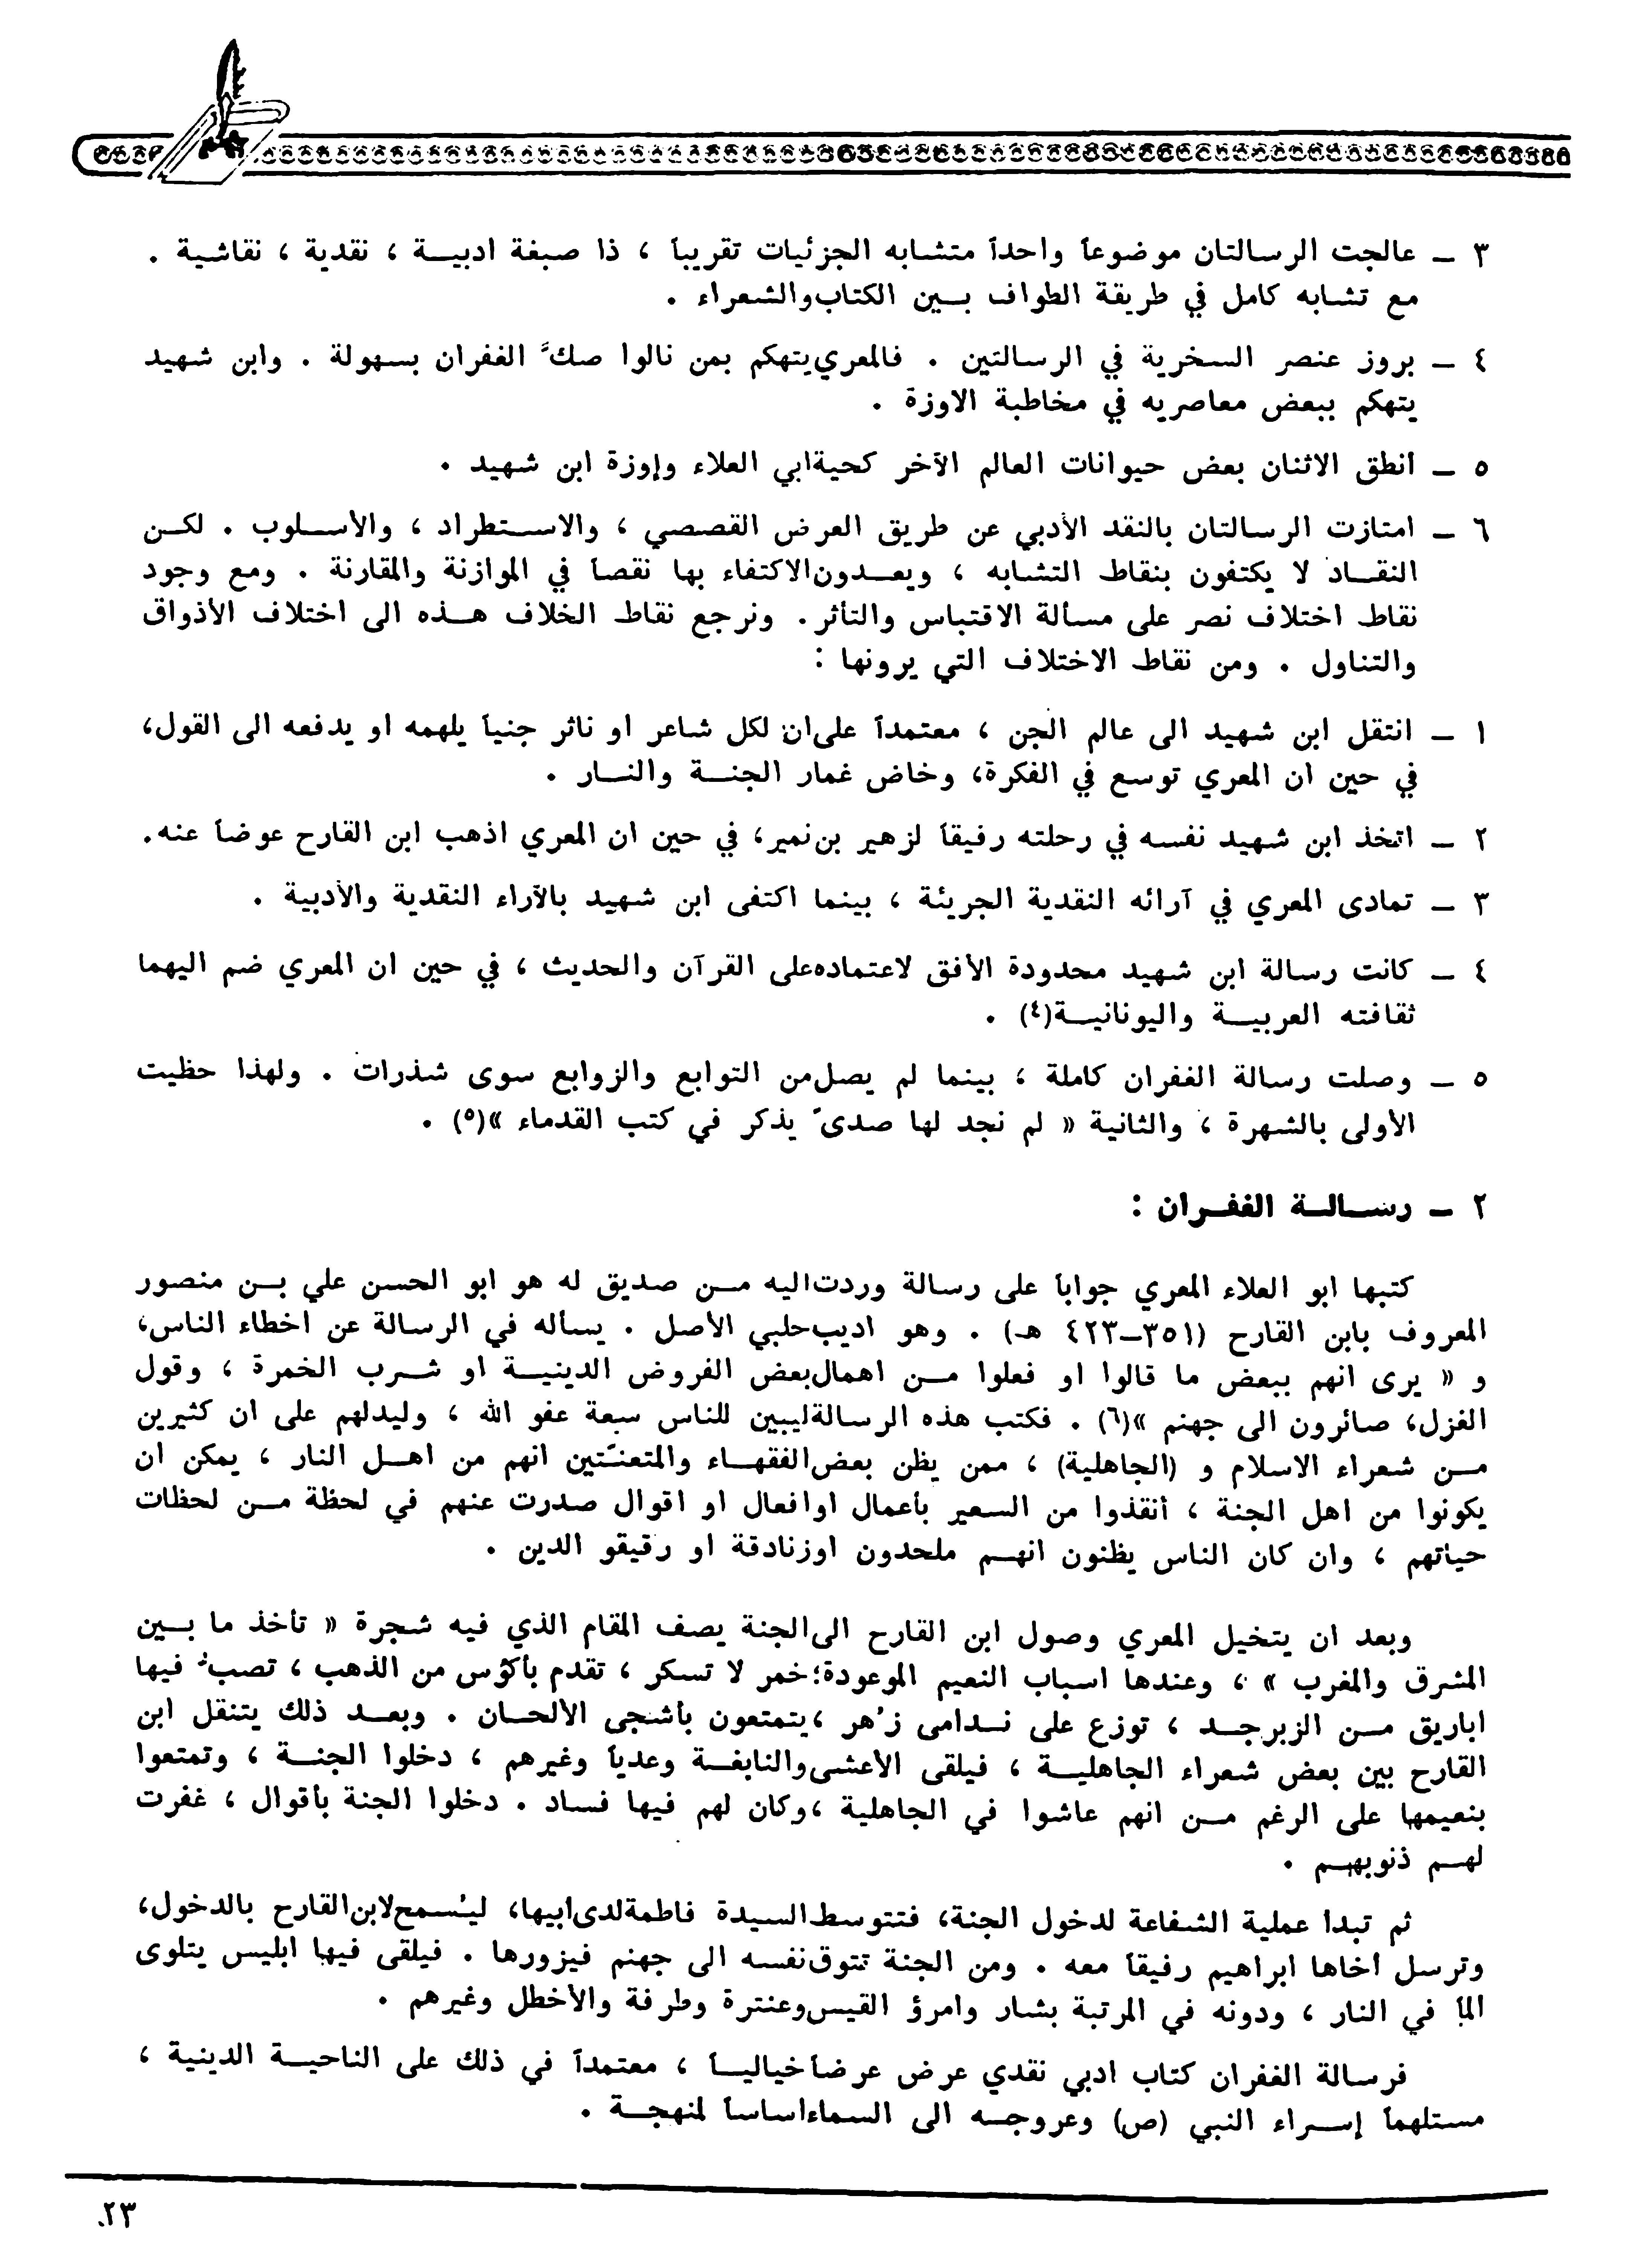 ٣ ــ عالجت الرسالتان موضوعاً واحداً متشابه الجزئيات تقريباً ، ذا صبغة ادبيــة ، نقدية ، نقاشية .
مع تشابه كامل في طريقة الطواف بــين الكتاب والشعراء .
٤ ــ بروز عنصر السخرية في الرسالتين . فالمعري يتهكم بمن نالوا صكّ الغفران بسهولة . وابن شهيد
يتهكم ببعض معاصريه في مخاطبة الاوزة .
٥ ــ أنطق الاثنان بعض حيوانات العالم الآخر كحية ابي العلاء وإوزة ابن شهيد .
٦ ــ امتازت الرسالتان بالنقد الأدبي عن طريق العرض القصصي ، والاستطراد ، والأسلوب . لكــن
النقــاد لا يكتفون بنقاط التشابه ، ويعــدون الاكتفاء بها نقصاً في الموازنة والمقارنة . ومع وجود
نقاط اختلاف نصر على مسألة الاقتباس والتأثر . ونرجع نقاط الخلاف هــذه الى اختلاف الأذواق
والتناول . ومن نقاط الاختلاف التي يرونها :
١ ــ انتقل ابن شهيد الى عالم الجن ، معتمداً على ان لكل شاعر او ناثر جنياً يلهمه او يدفعه الى القول،
في حين ان المعري توسع في الفكرة، وخاض غمار الجنــة والنــار .
٢ ــ اتخذ ابن شهيد نفسه في رحلته رفيقاً لزهير بن نمير، في حين ان المعري اذهب ابن القارح عوضاً عنه.
٣ ــ تمادى المعري في آرائه النقدية الجريئة ، بينما اكتفى ابن شهيد بالآراء النقدية والأدبية .
٤ ــ كانت رسالة ابن شهيد محدودة الأفق لاعتماده على القرآن والحديث ، في حين ان المعري ضم اليهما
ثقافته العربيــة واليونانيــة(٤) .
٥ ــ وصلت رسالة الغفران كاملة ، بينما لم يصل من التوابع والزوابع سوى شذرات . ولهذا حظيت
الأولى بالشهرة ، والثانية « لم نجد لها صدىً يذكر في كتب القدماء »(٥) .
٢ ــ رســالــة الغفــران :
كتبها ابو العلاء المعري جواباً على رسالة وردت اليه مــن صديق له هو ابو الحسن علي بــن منصور
المعروف بابن القارح (٣٥١–٤٢٣ هـ) . وهو اديب حلبي الأصل . يسأله في الرسالة عن اخطاء الناس،
و « يرى انهم ببعض ما قالوا او فعلوا مــن اهمال بعض الفروض الدينيــة او شــرب الخمرة ، وقول
الغزل، صائرون الى جهنم »(٦) . فكتب هذه الرسالة ليبين للناس سعة عفو الله ، وليدلهم على ان كثيرين
مــن شعراء الاسلام و (الجاهلية) ، ممن يظن بعض الفقهــاء والمتعنّتين انهم من اهــل النار ، يمكن ان
يكونوا من اهل الجنة ، أنقذوا من السعير بأعمال او افعال او اقوال صدرت عنهم في لحظة مــن لحظات
حياتهم ، وان كان الناس يظنون انهــم ملحدون او زنادقة او رقيقو الدين .
وبعد ان يتخيل المعري وصول ابن القارح الى الجنة يصف المقام الذي فيه شجرة « تأخذ ما بــين
المشرق والمغرب » ، وعندها اسباب النعيم الموعودة؛ خمر لا تسكر ، تقدم بأكؤس من الذهب ، تصبُّ فيها
اباريق مــن الزبرجــد ، توزع على نــدامى زُهر ، يتمتعون بأشجى الألحــان . وبعــد ذلك يتنقل ابن
القارح بين بعض شعراء الجاهليــة ، فيلقى الأعشى والنابغــة وعدياً وغيرهم ، دخلوا الجنــة ، وتمتعوا
بنعيمها على الرغم مــن انهم عاشوا في الجاهلية ، وكان لهم فيها فساد . دخلوا الجنة بأقوال ، غفرت
لهــم ذنوبهــم .
ثم تبدأ عملية الشفاعة لدخول الجنة، فتتوسط السيدة فاطمة لدى ابيها، ليُسمح لابن القارح بالدخول،
وترسل أخاها ابراهيم رفيقاً معه . ومن الجنة تتوق نفسه الى جهنم فيزورها . فيلقى فيها ابليس يتلوى
الماً في النار ، ودونه في المرتبة بشار وامرؤ القيس وعنترة وطرفة والأخطل وغيرهم .
فرسالة الغفران كتاب ادبي نقدي عرض عرضاً خياليــاً ، معتمداً في ذلك على الناحيــة الدينية ،
مستلهماً إســراء النبي (ص) وعروجــه الى السماء اساساً لمنهجــة .
٢٣.